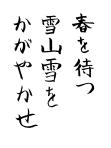 春を待つ
雪山雪を
かがやかせ